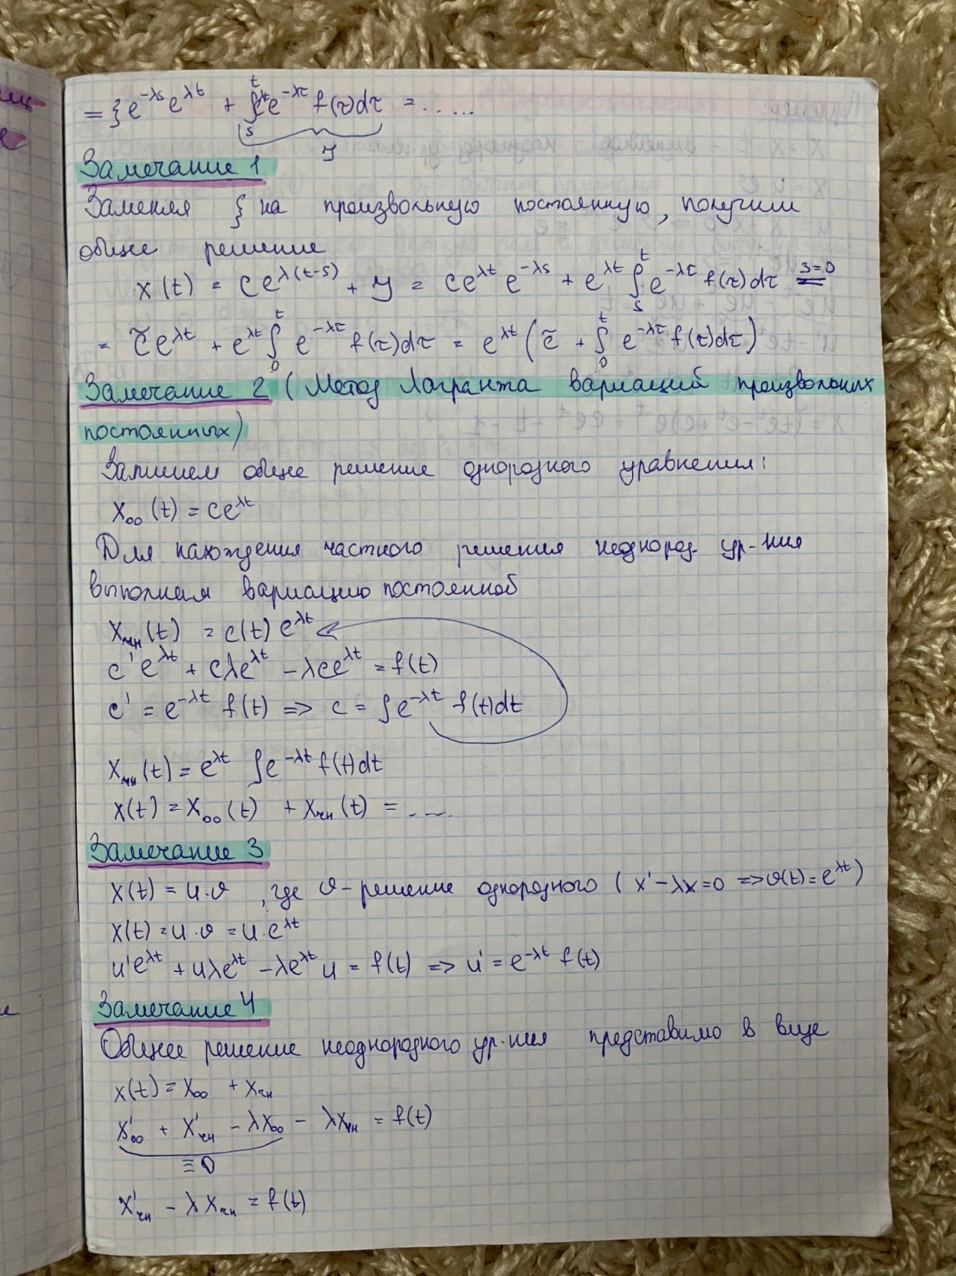 = ξe^{-λs}e^{λt} + ∫_s^t e^{λt}e^{-λτ} f(τ)dτ = .....
y
Замечание 1
Заменяя ξ на произвольную постоянную, получим
общее решение
x(t) = ce^{λ(t-s)} + y = ce^{λt} e^{-λs} + e^{λt} ∫_s^t e^{-λτ} f(τ)dτ \overset{s=0}{=}
= c̃e^{λt} + e^{λt} ∫_0^t e^{-λτ} f(τ)dτ = e^{λt} (c̃ + ∫_0^t e^{-λτ} f(τ)dτ)
Замечание 2 (Метод Лагранжа вариаций произвольных
постоянных)
Запишем общее решение однородного уравнения:
x_{oo}(t) = ce^{λt}
Для нахождения частного решения неоднород. ур-ния
выполняя вариацию постоянной
x_{чн}(t) = c(t) e^{λt}
c' e^{λt} + cλe^{λt} - λce^{λt} = f(t)
c' = e^{-λt} f(t) => c = ∫e^{-λt} f(t)dt
x_{чн}(t) = e^{λt} ∫e^{-λt} f(t)dt
x(t) = x_{oo}(t) + x_{чн}(t) = ....
Замечание 3
x(t) = u·v , где v - решение однородного ( x' - λx = 0 => v(t) = e^{λt} )
x(t) = u·v = u·e^{λt}
u'e^{λt} + uλe^{λt} - λe^{λt} u = f(t) => u' = e^{-λt} f(t)
Замечание 4
Общее решение неоднородного ур-ния представимо в виде
x(t) = x_{oo} + x_{чн}
x'_{oo} + x'_{чн} - λx_{oo} - λx_{чн} = f(t)
≡ 0
x'_{чн} - λ x_{чн} = f(t)